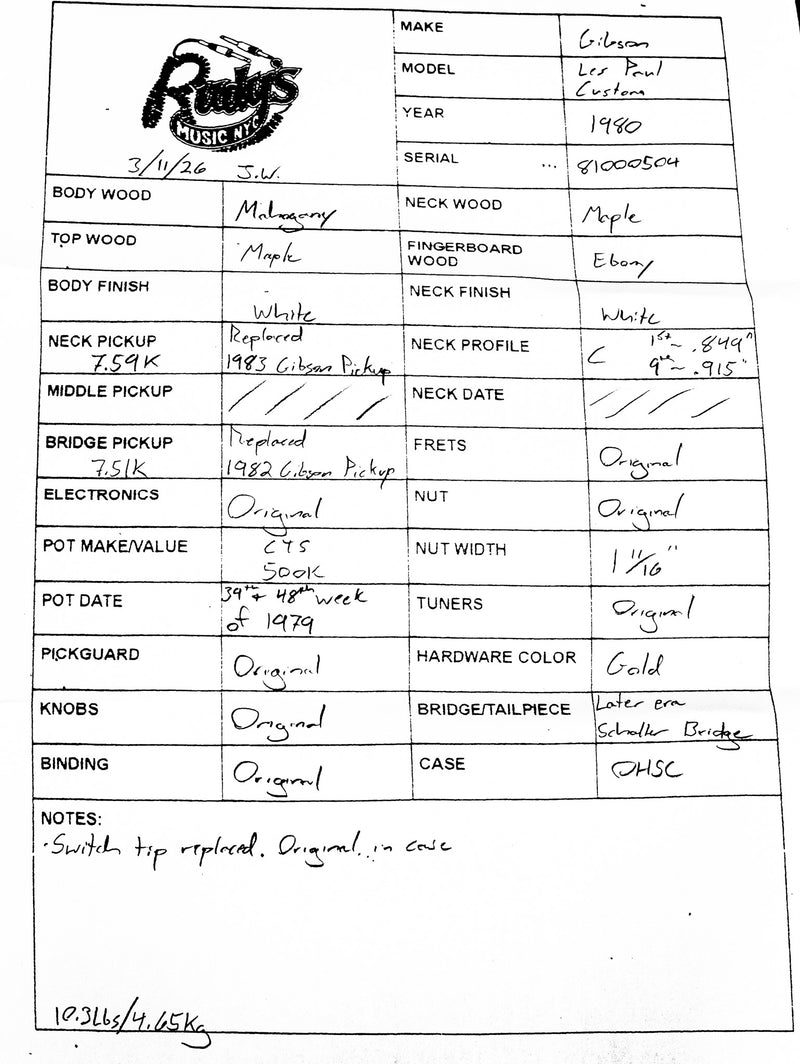 Rudy's
MUSIC NYC
3/11/26 J.W.
MAKE Gibson
MODEL Les Paul
Custom
YEAR 1980
SERIAL ... 81000504
BODY WOOD Mahogany
NECK WOOD Maple
TOP WOOD Maple
FINGERBOARD
WOOD Ebony
BODY FINISH White
NECK FINISH White
NECK PICKUP Replaced
7.59K 1983 Gibson Pickup
NECK PROFILE C 1st ~ .849"
9th ~ .915"
MIDDLE PICKUP / / / /
NECK DATE / / / /
BRIDGE PICKUP Replaced
7.51K 1982 Gibson Pickup
FRETS Original
ELECTRONICS Original
NUT Original
POT MAKE/VALUE CTS
500K
NUT WIDTH 1 11/16"
POT DATE 39th + 48th week
of 1979
TUNERS Original
PICKGUARD Original
HARDWARE COLOR Gold
KNOBS Original
BRIDGE/TAILPIECE Later era
Schaller Bridge
BINDING Original
CASE OHSC
NOTES:
·Switch tip replaced. Original in case
10.3Lbs/4.65Kg